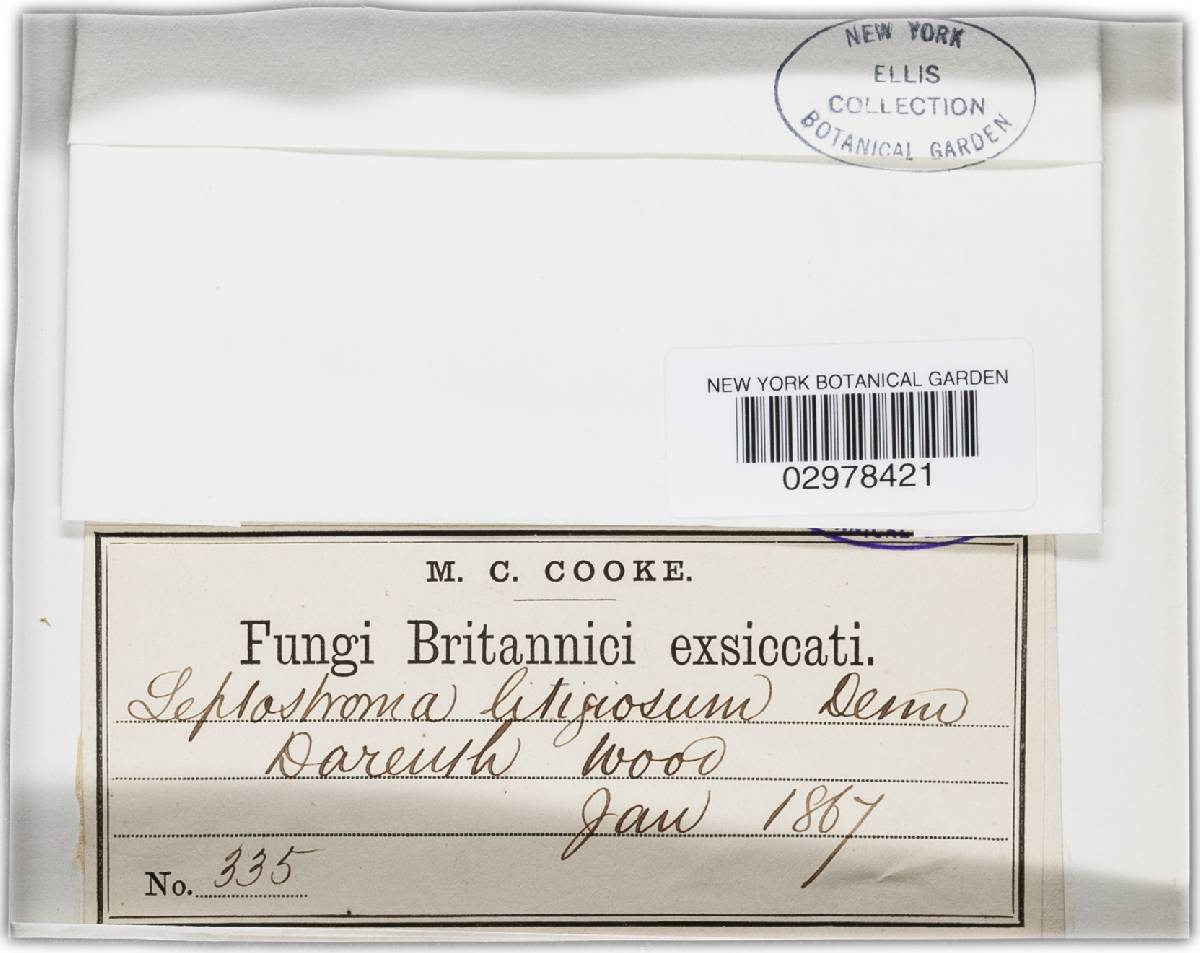 NEW YORK
ELLIS
COLLECTION
BOTANICAL GARDEN
NEW YORK BOTANICAL GARDEN
02978421
M. C. COOKE.
Fungi Britannici exsiccati.
Leptostroma litigiosum Desm
Darenth Wood
Jan 1867
No. 335